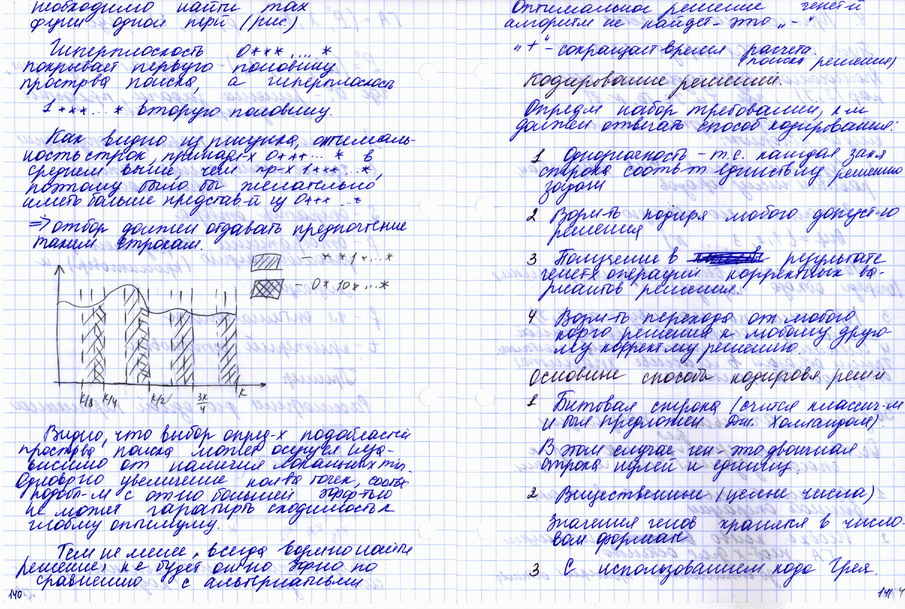 необходимо найти max
функ одной пер (рис.)
Гиперплоскость 0*** ... *
покрывает первую половину
простр-ва поиска, а гиперплоскость
1 *** ... * вторую половину.
Как видно из рисунка, оптималь-
ность строк, принадл-х 0*** ... * в
среднем выше, чем пр-х 1*** ... *,
поэтому было бы желательно,
иметь больше представ-й из 0*** ... *
=> отбор должен отдавать предпочтение
таким строкам.
- * * 1 * ... *
- 0 * 10 * ... *
k/8 k/4 k/2 3k/4 k
Видно, что выбор опред-х подобластей
простр-ва поиска может осущ-ся неза-
висимо от наличия локальных
Однако увеличение кол-ва точек,
с относ большей эфф-тью
не может гарант-ть сходимость к
глобму оптимуму.
Тем не менее, всегда вероятно найти
решение, не будет оч-но эф-но по
сравнению с альтернативными
140
Оптимальное решение генет-й
алгоритм не найдет - это "-"
"+" - сокращает время расчета.
(поиска решения)
Кодирование решений.
Определ набор требований, к-м
должен отвечать способ кодирования:
1 Однозначность - т.е. каждая закя
строка соотв-т единств-му решению
задачи
2 Возм-ть кодир-я любого допуст-го
решения
3 Получение в результате
генет-х операций корректных ва-
риантов решения.
4 Возм-ть перехода от любого
корр-го решения к любому друго-
му корректму решению
Основные способы кодиров-я решений
1 Битовая строка (счит-ся классич-м
и был предложен Дж. Холландом).
В этом случае ген - это двоичная
строка нулей и единиц
2 Вещественные (целые числа)
Значения генов хранятся в число-
вом формах
3 С использованием кода Грея.
141